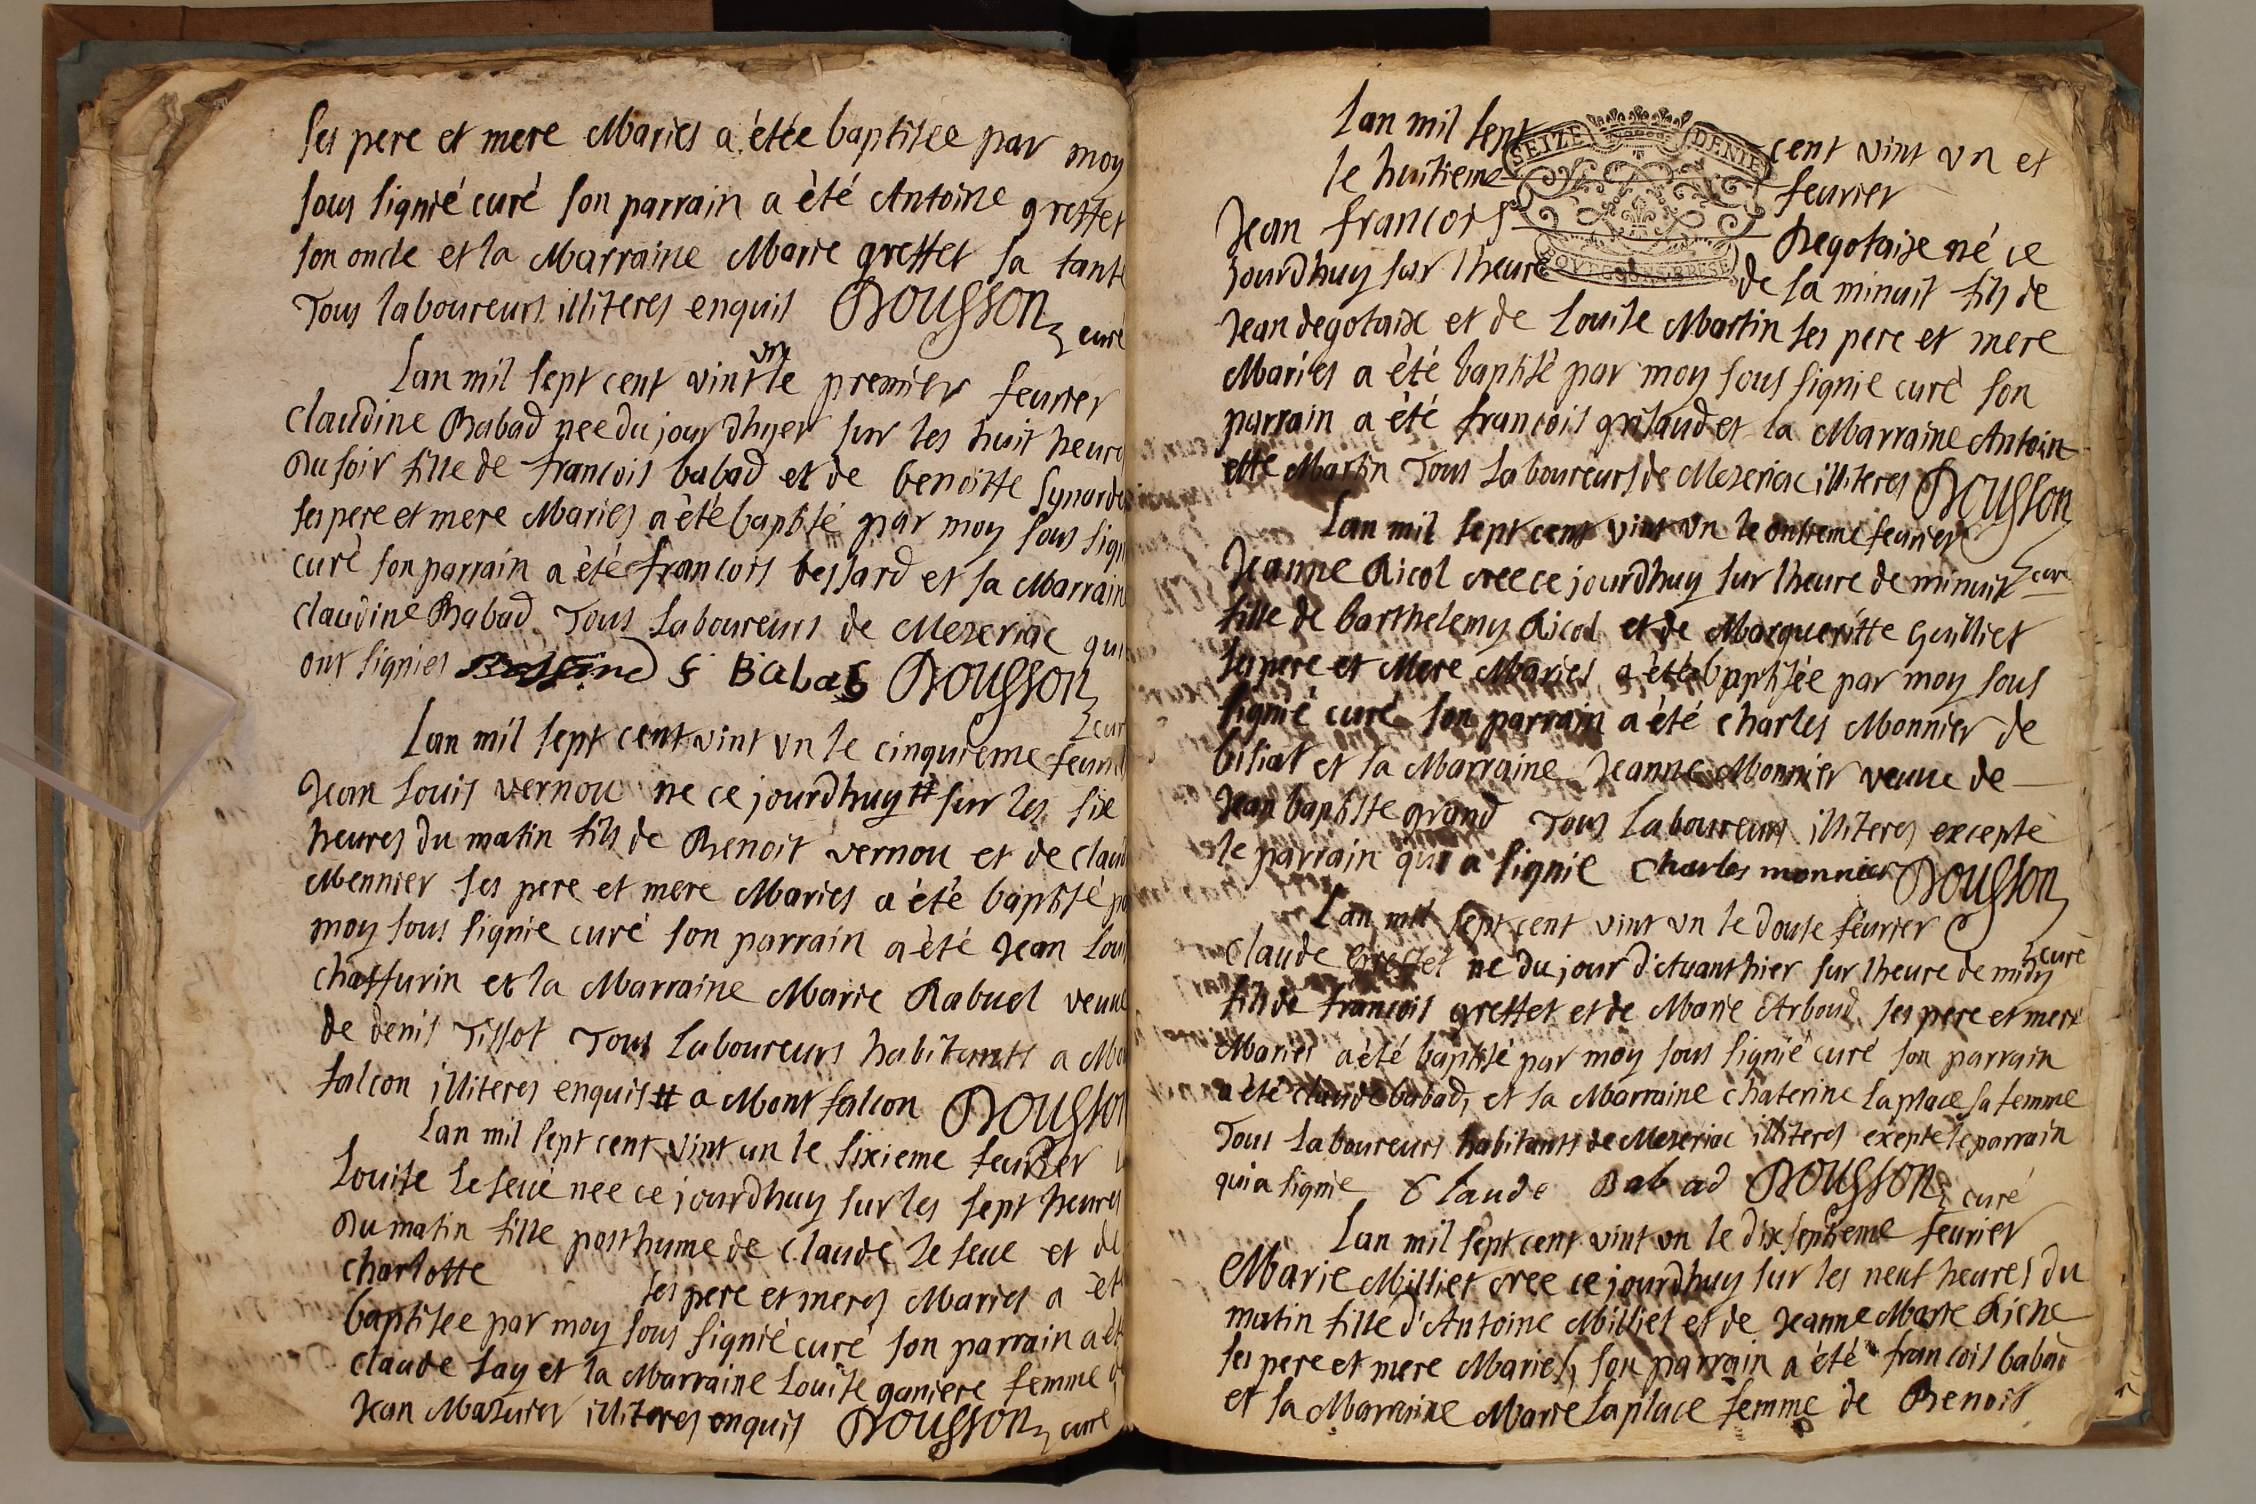 ses pere et mere Mariés a étée baptisée par moy
sous signié curé son parrain a èté Antoine greffet
son oncle et la Marraine Marie greffet sa tante
Tous laboureurs illiteres enquis Dousson curé
Lan mil sept cent vint vn le premier feurier
claudine Babad nee du jour dhyer sur les huit heure
Du soir fille de francois babad et de benoitte
ses pere et mere Mariés a èté baptisé par moy sous sign
curé son parrain a èté francois bessard et sa Marrain
claudine Babad Tous Laboureurs de Mezeriac qui
ont signies F Babad Dousson
cur
Lan mil sept cent vint vn le cinquieme feuri
Jean Louis vernou ne ce jourdhuy # sur les six
heures du matin fils de Benoit vernou et de clau
Mennier ses pere et mere Mariés a été baptisé p
moy sous signie curé son parrain a èté Jean Loui
chaffurin et la Marraine Marie Rabuel veuue
de denis Tissot Tous Laboureurs habitants a Mo
falcon illiteres enquis # a Mont falcon Dousson
Lan mil sept cent vint un le sixieme feurier
Louise Le seue nee ce jourdhuy sur les sept heures
Du matin fille posthume de claude le seue et de
charlotte ses pere et meres Mariés a èté
baptisee par moy sous signié curé son parrain a èt
claude Lay et la Marraine Louise ganiere femme d
Jean Mazuier illiteres enquis Dousson curé
Lan mil sept cent vint vn et
SEIZE DENIE
le huitieme feurier
Jean francois Degotaise né ce
jourdhuy sur lheure de la minuit fils de
BOVRG BRESSE
Jean degotaise et de Louise Martin ses pere et mere
Mariés a èté baptisé par moy sous signie curé son
parrain a été francois grilaud et la Marraine Antoin
ette Martin Tous Laboureurs de Mezeriac illiteres Dousson
Lan mil sept cent vint vn le ontieme feurier
Jeanne Ricol nee ce jourdhuy sur lheure de minuit curé
fille de barthelemy Ricol et de Margueritte Guilliet
ses pere et Mere Mariés a été baptisée par moy sous
signié curé son parrain a été charles Monnier de
bisiat et la Marraine Jeanne Monnier veuue de
Jean baptiste grand Tous Laboureurs illiteres excepte
le parrain qui a signie Charles monnier Dousson
Lan mil sept cent vint vn le douse feurier
curé
Claude Greffet ne du jour d'Auant hier sur lheure de midy
fils de francois greffet et de Marie Arboud ses pere et mere
Mariés a été baptisé par moy sous signié curé son parrain
a èté claude babad, et sa Marraine chaterine Laplace sa femme
Tous Laboureurs habitants de Mezeriac illiteres exepte le parrain
qui a signie Claude Babad Dousson curé
Lan mil sept cent vint vn le dix septieme feurier
Marie Milliet nee ce jourdhuy sur les neuf heures du
matin fille d'Antoine Milliet et de Jeanne Marie Riche
ses pere et mere Mariés, son parrain a été francois babad
et sa Marraine Marie Laplace femme de Benoit